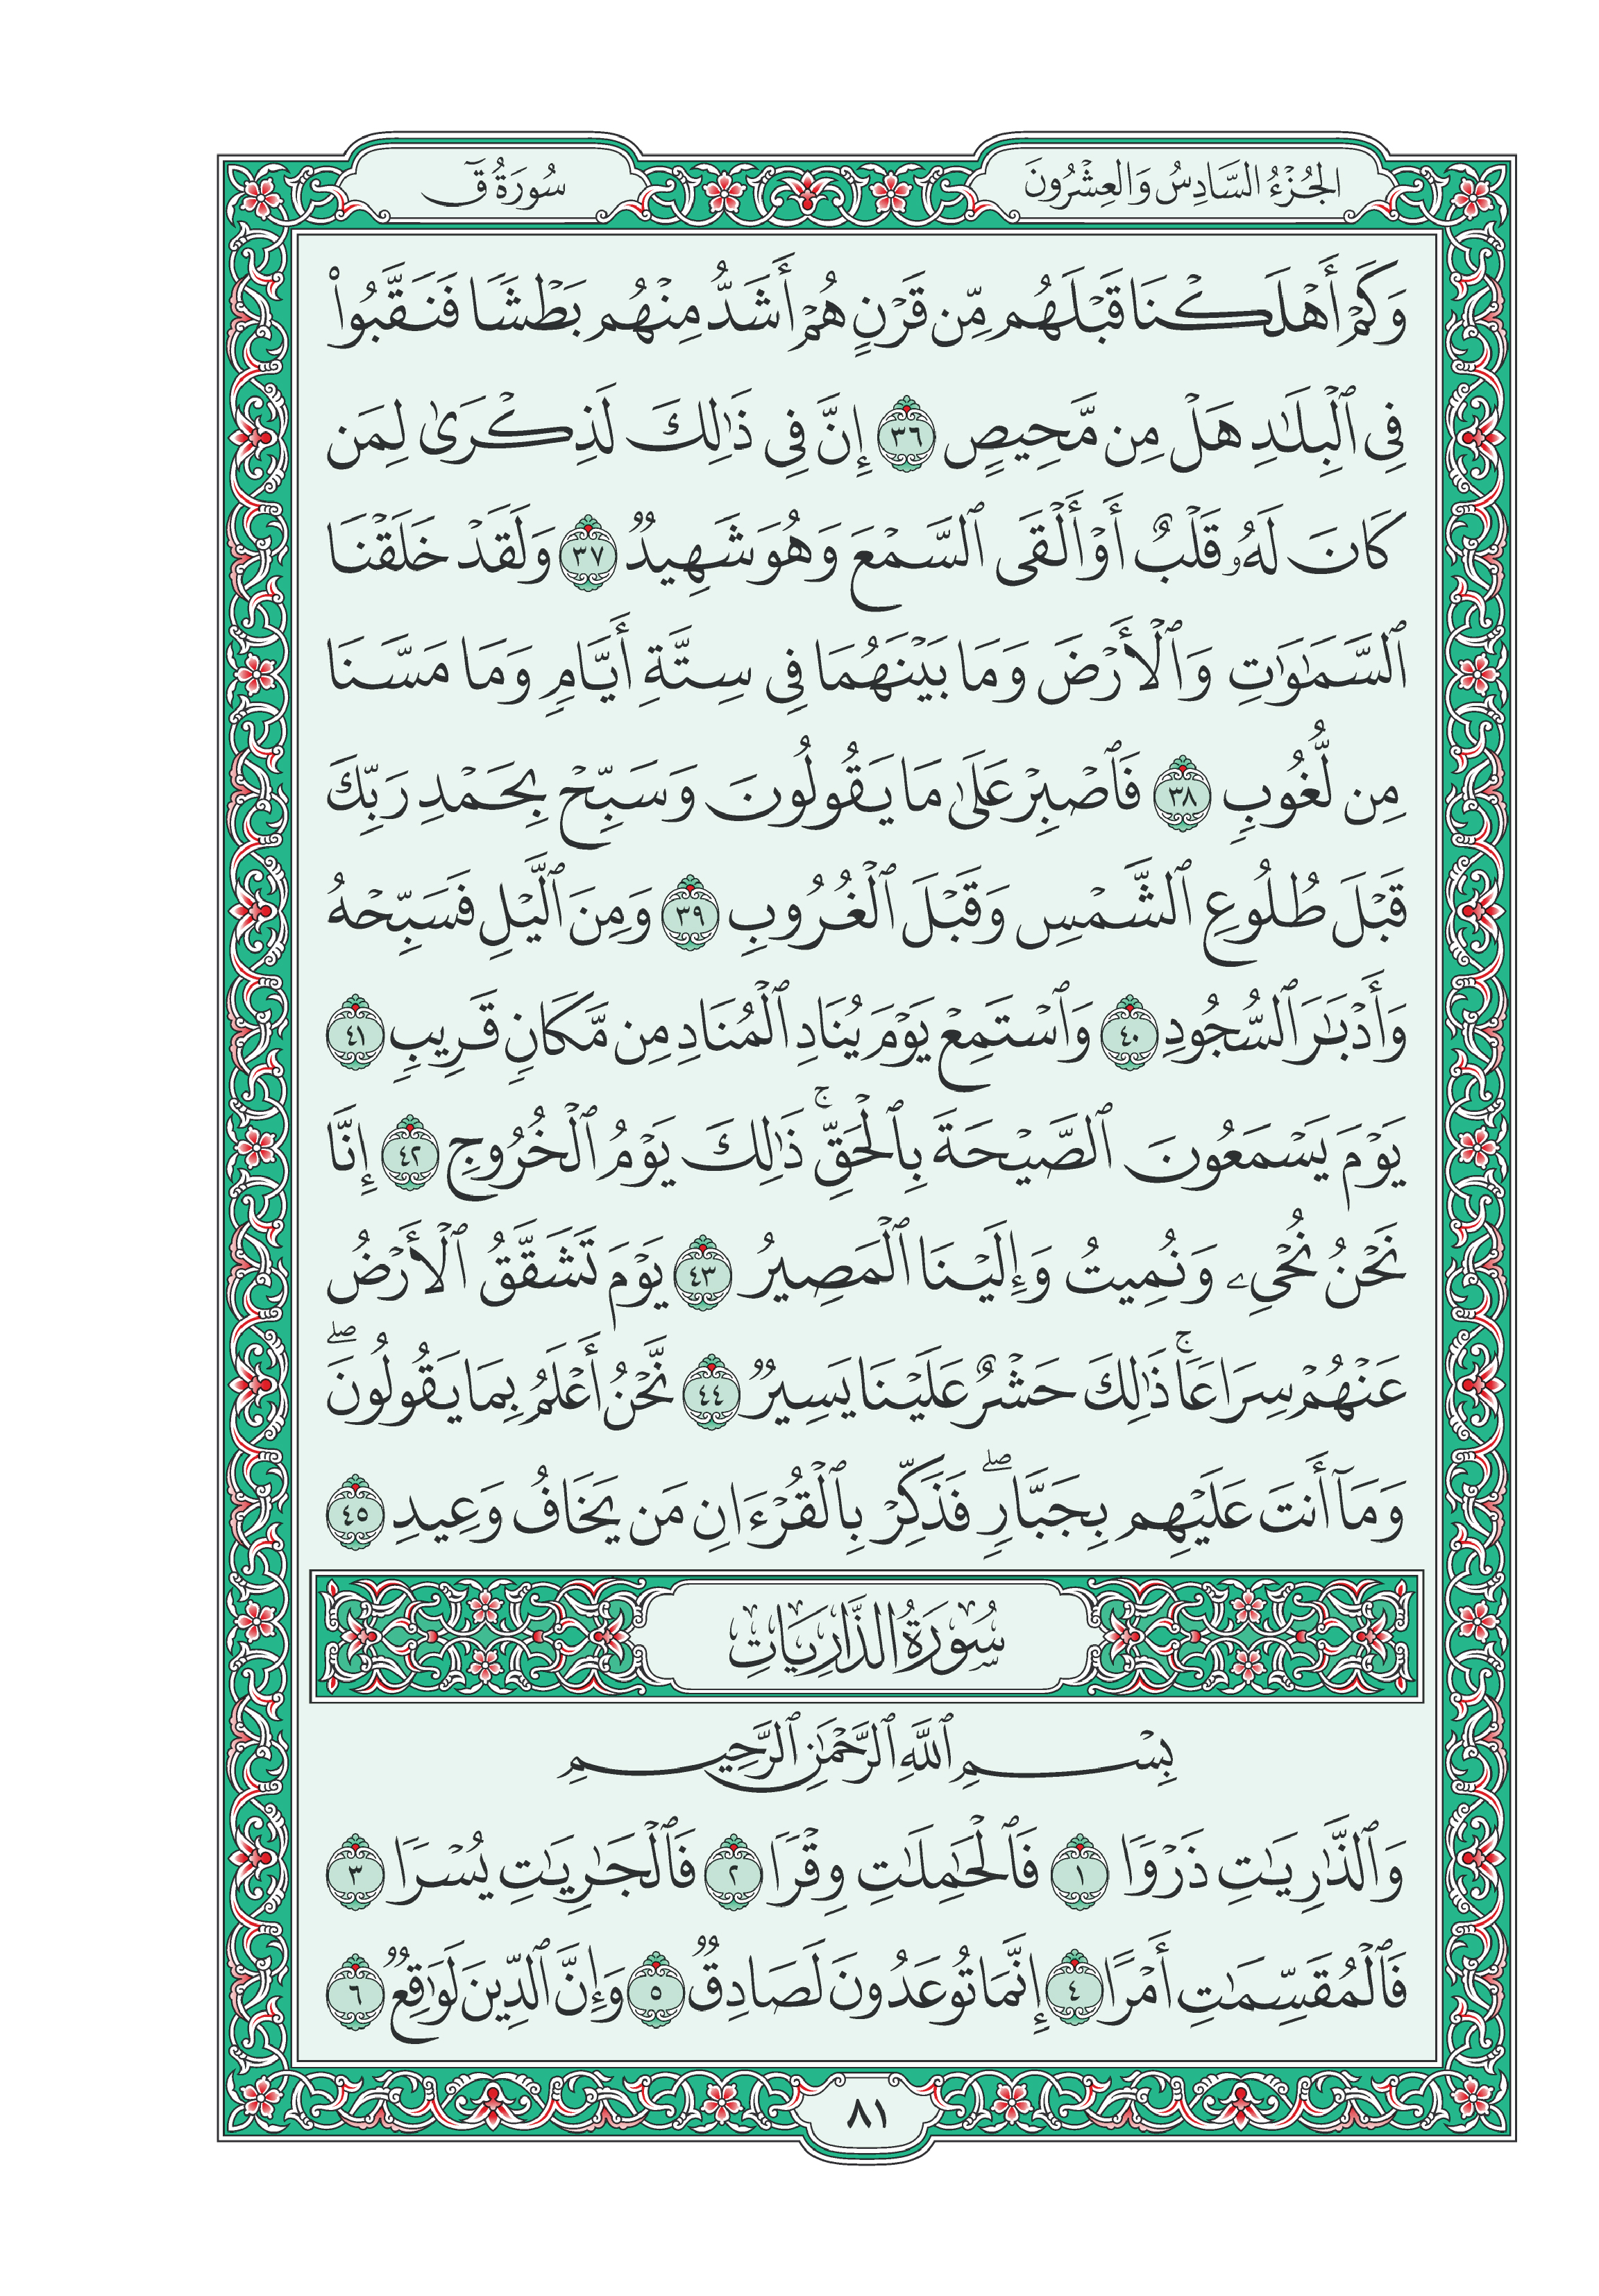 الجُزْءُ السَّادِسُ وَالعِشْرُونَ
سُورَةُ قٓ
وَكَمْ أَهْلَكْنَا قَبْلَهُم مِّن قَرْنٍ هُمْ أَشَدُّ مِنْهُم بَطْشًا فَنَقَّبُوا۟
فِى ٱلْبِلَـٰدِ هَلْ مِن مَّحِيصٍ ٣٦ إِنَّ فِى ذَٰلِكَ لَذِكْرَىٰ لِمَن
كَانَ لَهُۥ قَلْبٌ أَوْ أَلْقَى ٱلسَّمْعَ وَهُوَ شَهِيدٌ ٣٧ وَلَقَدْ خَلَقْنَا
ٱلسَّمَـٰوَٰتِ وَٱلْأَرْضَ وَمَا بَيْنَهُمَا فِى سِتَّةِ أَيَّامٍ وَمَا مَسَّنَا
مِن لُّغُوبٍ ٣٨ فَٱصْبِرْ عَلَىٰ مَا يَقُولُونَ وَسَبِّحْ بِحَمْدِ رَبِّكَ
قَبْلَ طُلُوعِ ٱلشَّمْسِ وَقَبْلَ ٱلْغُرُوبِ ٣٩ وَمِنَ ٱلَّيْلِ فَسَبِّحْهُ
وَأَدْبَـٰرَ ٱلسُّجُودِ ٤٠ وَٱسْتَمِعْ يَوْمَ يُنَادِ ٱلْمُنَادِ مِن مَّكَانٍ قَرِيبٍ ٤١
يَوْمَ يَسْمَعُونَ ٱلصَّيْحَةَ بِٱلْحَقِّ ۚ ذَٰلِكَ يَوْمُ ٱلْخُرُوجِ ٤٢ إِنَّا
نَحْنُ نُحْىِۦ وَنُمِيتُ وَإِلَيْنَا ٱلْمَصِيرُ ٤٣ يَوْمَ تَشَقَّقُ ٱلْأَرْضُ
عَنْهُمْ سِرَاعًا ۚ ذَٰلِكَ حَشْرٌ عَلَيْنَا يَسِيرٌ ٤٤ نَّحْنُ أَعْلَمُ بِمَا يَقُولُونَ ۖ
وَمَآ أَنتَ عَلَيْهِم بِجَبَّارٍ ۖ فَذَكِّرْ بِٱلْقُرْءَانِ مَن يَخَافُ وَعِيدِ ٤٥
سُورَةُ الذَّارِيَاتِ
بِسْمِ ٱللَّهِ ٱلرَّحْمَـٰنِ ٱلرَّحِيمِ
وَٱلذَّٰرِيَـٰتِ ذَرْوًا ١ فَٱلْحَـٰمِلَـٰتِ وِقْرًا ٢ فَٱلْجَـٰرِيَـٰتِ يُسْرًا ٣
فَٱلْمُقَسِّمَـٰتِ أَمْرًا ٤ إِنَّمَا تُوعَدُونَ لَصَادِقٌ ٥ وَإِنَّ ٱلدِّينَ لَوَٰقِعٌ ٦
٨١